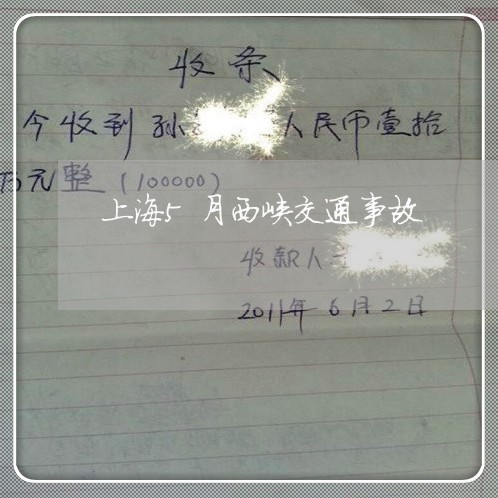 收条
今收到孙 人民币壹拾
万元整（100000）
上海5月西峡交通事故
收款人
2011年6月2日